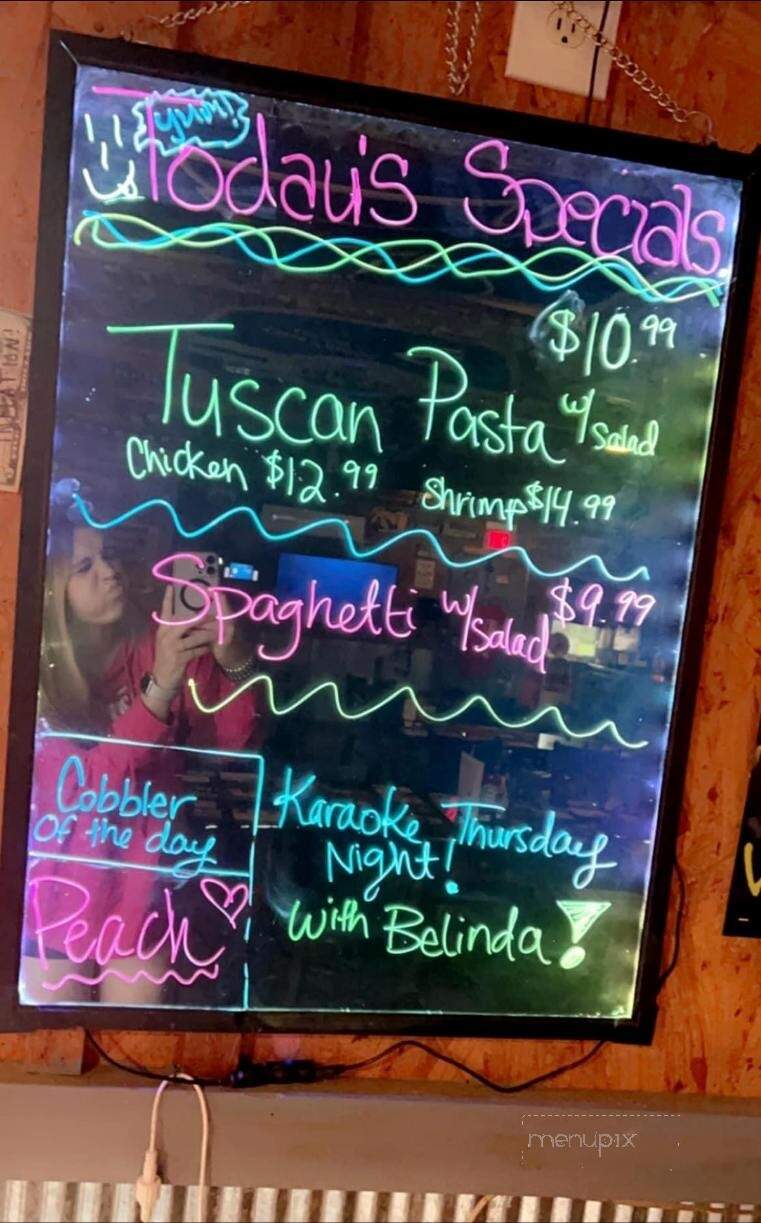 yum!
Today's Specials
$10.99
Tuscan Pasta w/ Salad
Chicken $12.99 Shrimp $14.99
Spaghetti w/ Salad $9.99
Cobbler
of the day
Peach
Karaoke Thursday
Night!
with Belinda!
menupix